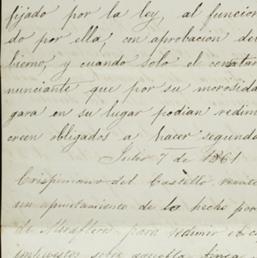 fijado por la ley, al funcion
do por ella, con aprobacion del
bierno, y cuando solo el
nunciante que por su morosida
gara en su lugar podian redim
creen obligados a hacer segundo
Julio 7 de 1861
del Castillo
un apuntamiento de los hecho por
de para redimir el
sobre aquella finca